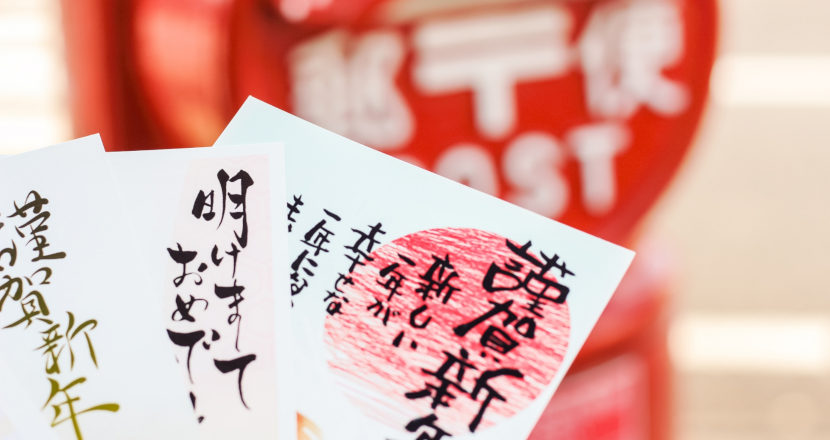 郵〒便
POST
謹賀新年
明けまして
おめで
謹賀新年
新しい
一年が
幸せな
一年に
ま